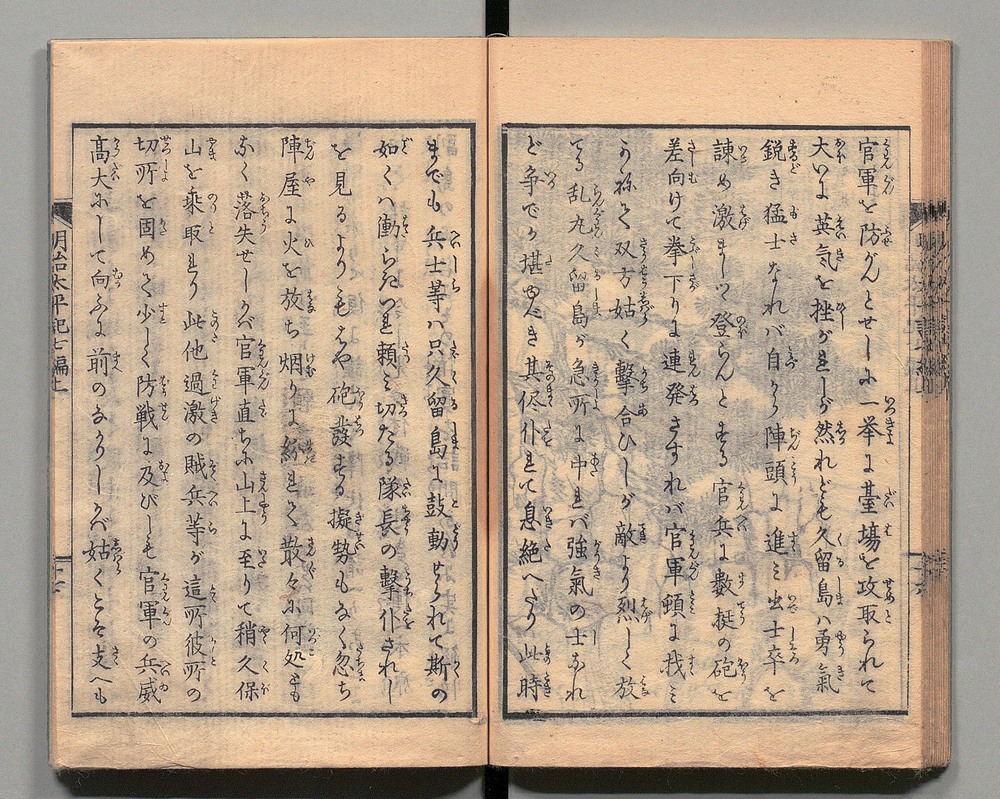 官軍を防がんとせしに一挙に臺場を攻取られて
大いに英気を挫がれしが然れども久留島ハ勇氣
鋭き猛士なれバ自から陣頭に進ミ出士卒を
諫め激まして登らんとする官兵に數挺の砲を
差向けて拳下りに連発さすれバ官軍頗る
うて双方姑く撃合ひしが敵より烈しく放
てる乱丸久留島が急所に中れバ強氣の士なれ
ど争でか堪ゆべき其侭仆れて息絶へたり此時
までも兵士等ハ只久留島に鼓動せられて斯の
如くハ働らたれ頼ミ切たる隊長の撃仆されし
を見るよりもはや砲發する擬勢もなく忽ち
陣屋に火を放ち烟りに紛れて散々に何処とも
なく落失せしかバ官軍直ちに山上に至りて稍久保
山を乗取れり此他過激の賊兵等が這所彼所の
切所を固めて少しく防戦に及びしも官軍の兵威
高大にして向ふに前のなかりしかバ姑くこそ支へも
明治太平記七編上
十六